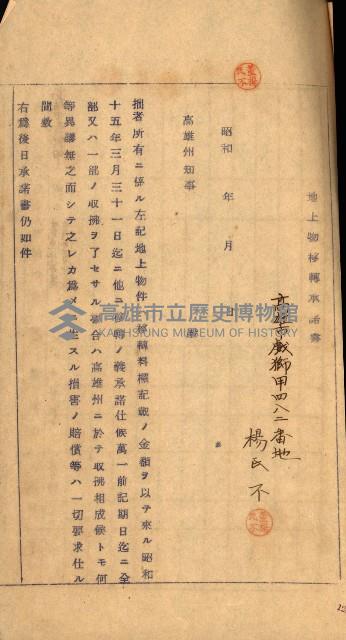 地上物移轉承諾書
高雄市戲獅甲四八二番地
楊氏不
昭和 年 月 日
高雄州知事 殿
拙者所有ニ係ル左記地上物件ノ移轉料標記ノ金額ヲ以テ來ル昭和
十五年三月三十一日迄ニ他ニ移轉ノ義承諾仕候萬一前記期日迄ニ全
部又ハ一部ノ收拂ヲ了セサル場合ハ高雄州ニ於テ收拂相成候トモ何
等異議無之而シテ之レカ爲メ生スル損害ノ賠償等ハ一切要求仕ル
間敷
右爲後日承諾書仍如件
高雄市立歷史博物館
KAOHSIUNG MUSEUM OF HISTORY